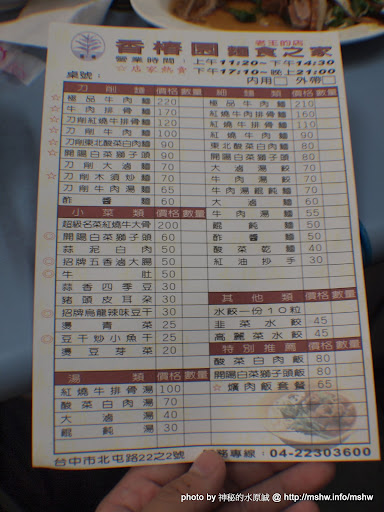 香椿園 老王的店 麵食之家
營業時間：上午11:20~下午14:30
☆店家熱食 下午17:10~晚上21:00
桌號： 內用□ 外帶□
刀削麵 價格 數量
☆ 極品牛肉麵 220
牛肉排骨麵 170
☆ 刀削紅燒牛排骨麵 120
☆ 刀削牛肉麵 100
刀削東北酸菜白肉麵 90
☆ 開陽白菜獅子頭 90
刀削大滷麵 70
☆ 刀削木須炒麵 70
刀削牛肉湯麵 65
酢醬麵 60
小菜類 價格 數量
超級名菜紅燒牛大骨 200
◎ 開陽白菜獅子頭 60
蒜泥白肉 50
◎ 招牌五香滷大腸 50
◎ 牛肚 50
蒜香四季豆 30
豬頭皮耳朶 30
◎ 招牌烏龍辣味豆干 30
燙青菜 25
◎ 豆干炒小魚干 25
燙豆芽菜 20
湯類 價格 數量
紅燒牛排骨湯 100
酸菜白肉湯 70
大滷湯 40
餛飩湯 30
細麵類 價格 數量
極品牛肉麵 210
紅燒牛肉排骨麵 160
紅燒牛排骨麵 110
紅燒牛肉麵 90
東北酸菜白肉麵 80
開陽白菜獅子頭麵 80
大滷湯餃 70
牛肉湯餃 70
牛肉湯餛飩麵 70
大滷麵 60
牛肉湯麵 55
餛飩麵 50
酢醬麵 50
酸菜乾麵 40
紅油抄手 30
其他類 價格 數量
水餃一份10粒
韭菜水餃 45
高麗菜水餃 45
特別推薦 價格 數量
酸菜白肉飯 80
開陽白菜獅子頭飯 80
☆ 爌肉飯套餐 65
台中市北屯路22之2號
專線：04-22303600
photo by 神秘的水原誠 @ http://mshw.info/mshw